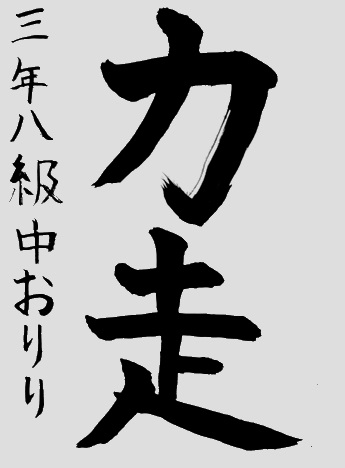 力走
三年八級中おりり